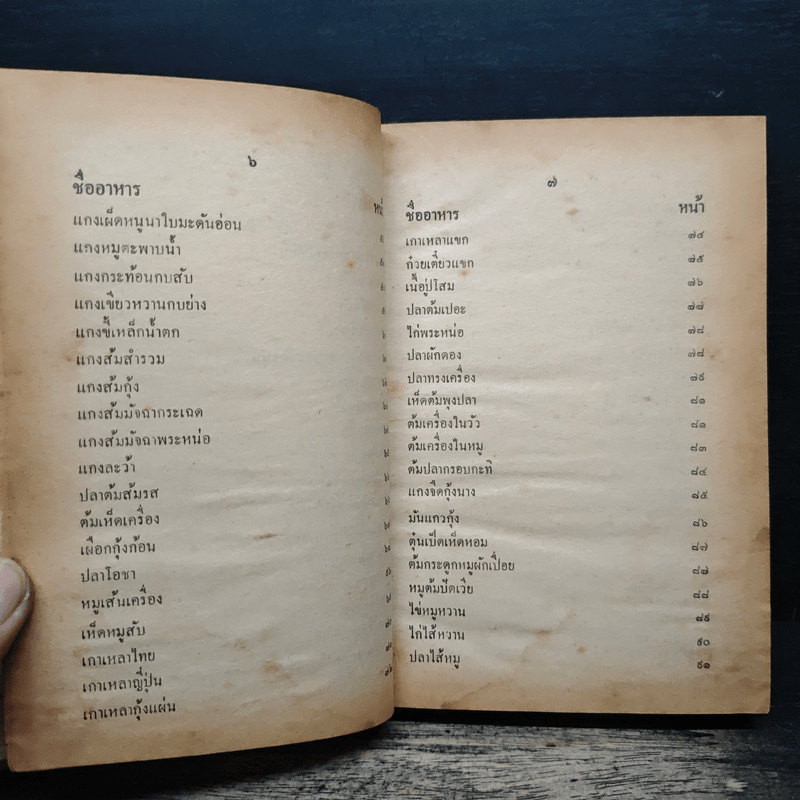 ๖
ชื่ออาหาร
แกงเผ็ดหนูนาใบมะดันอ่อน
แกงหมูตะพาบน้ำ
แกงกระท้อนกบสับ
แกงเขียวหวานกบย่าง
แกงขี้เหล็กน้ำตก
แกงส้มสำรวม
แกงส้มกุ้ง
แกงส้มมัจฉากระเฉด
แกงส้มมัจฉาพระหน่อ
แกงละว้า
ปลาต้มส้มรส
ต้มเห็ดเครื่อง
เผือกกุ้งก้อน
ปลาโอชา
หมูเส้นเครื่อง
เห็ดหมูสับ
เกาเหลาไทย
เกาเหลาญี่ปุ่น
เกาเหลากุ้งแผ่น
๗
ชื่ออาหาร หน้า
เกาเหลาแขก ๗๔
ก๋วยเตี๋ยวแขก ๗๕
เนื้อปู่โสม ๗๖
ปลาต้มเปอะ ๗๗
ไก่พระหน่อ ๗๘
ปลาผักดอง ๗๘
ปลาทรงเครื่อง ๗๙
เห็ดต้มพุงปลา ๘๑
ต้มเครื่องในวัว ๘๑
ต้มเครื่องในหมู ๘๓
ต้มปลากรอบกะทิ ๘๔
แกงจืดกุ้งนาง ๘๕
มันแกวกุ้ง ๘๖
ตุ๋นเป็ดเห็ดหอม ๘๗
ต้มกระดูกหมูผักเปื่อย ๘๗
หมูต้มบัตเวีย ๘๘
ไข่หมูหวาน ๘๙
ไก่ไส้หวาน ๙๐
ปลาไส้หมู ๙๑